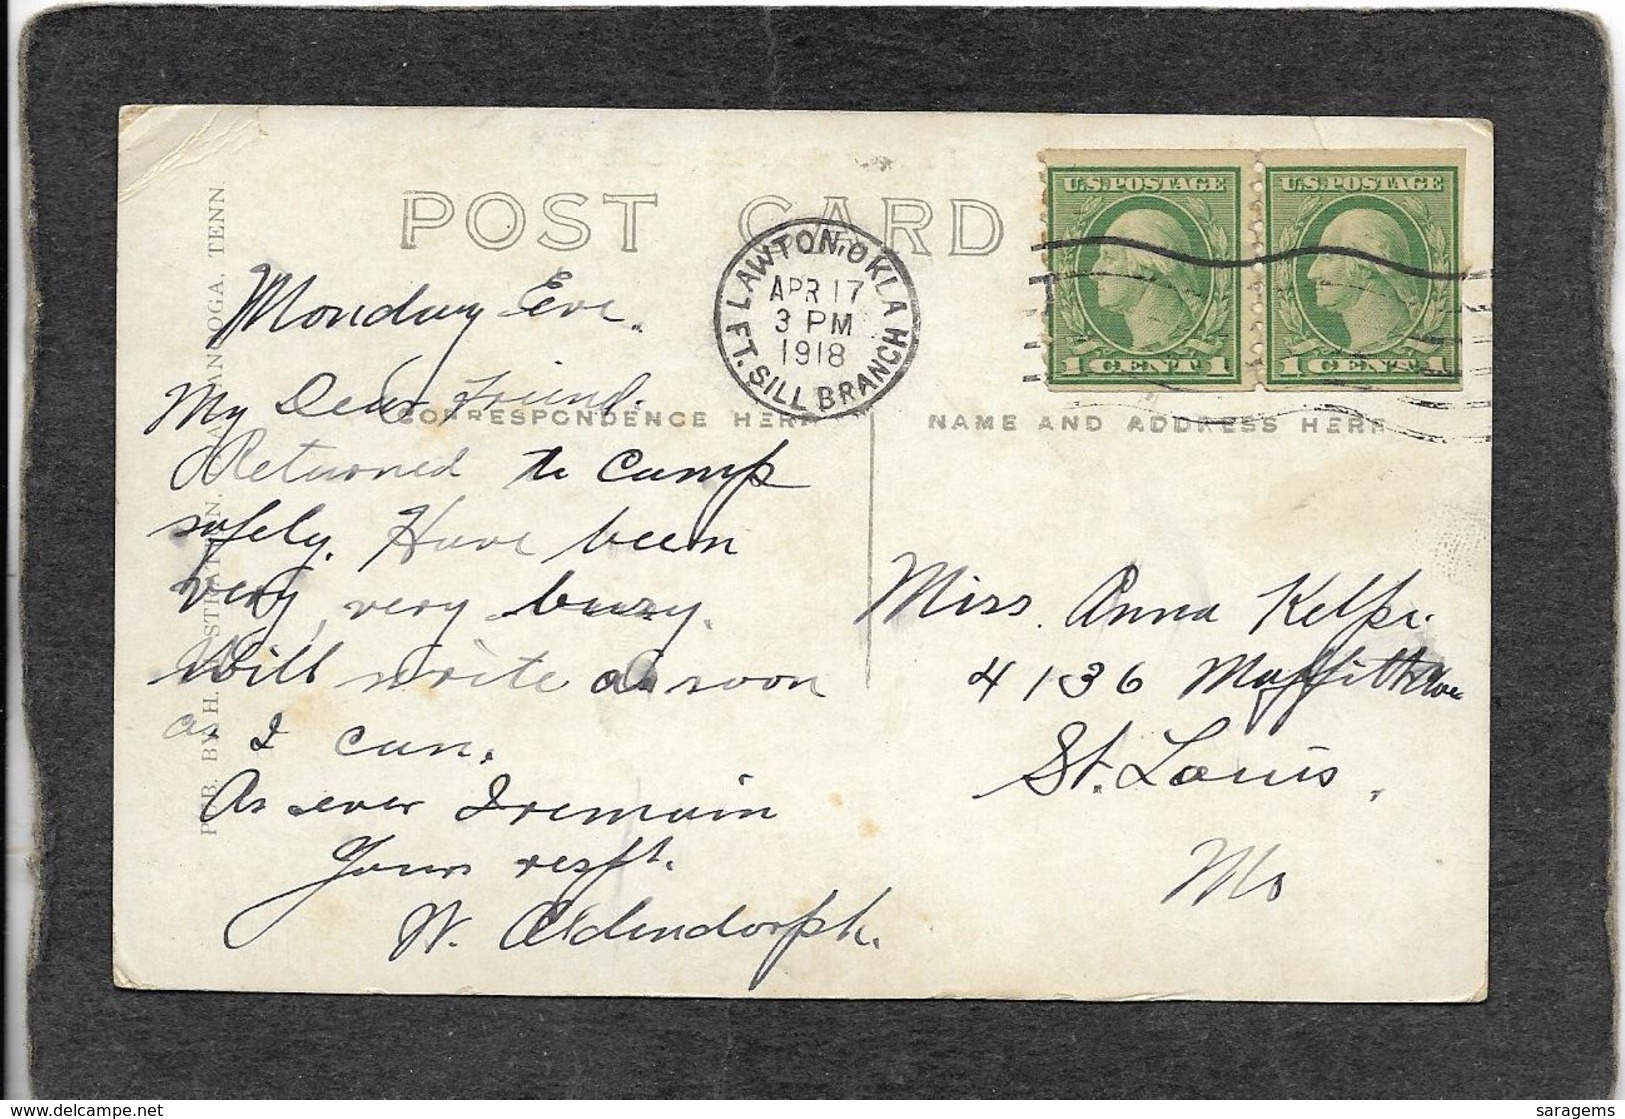 POST CARD
LAWTON, OKLA
APR 17
3 PM
1918
FT. SILL BRANCH
U.S. POSTAGE
1 CENT 1
U.S. POSTAGE
1 CENT 1
CORRESPONDENCE HERE
NAME AND ADDRESS HERE
Monday Eve.
My Dear Friend.
Returned to Camp
safely. Have been
very, very busy.
Will write as soon
as I can.
As ever I remain
Yours respt.
W. Aldendorph.
Miss. Anna Kelpe.
4136 Maffitt Ave
St. Louis,
Mo
PUB. BY H. STRATTON. CHATTANOOGA, TENN.
www.delcampe.net
saragems